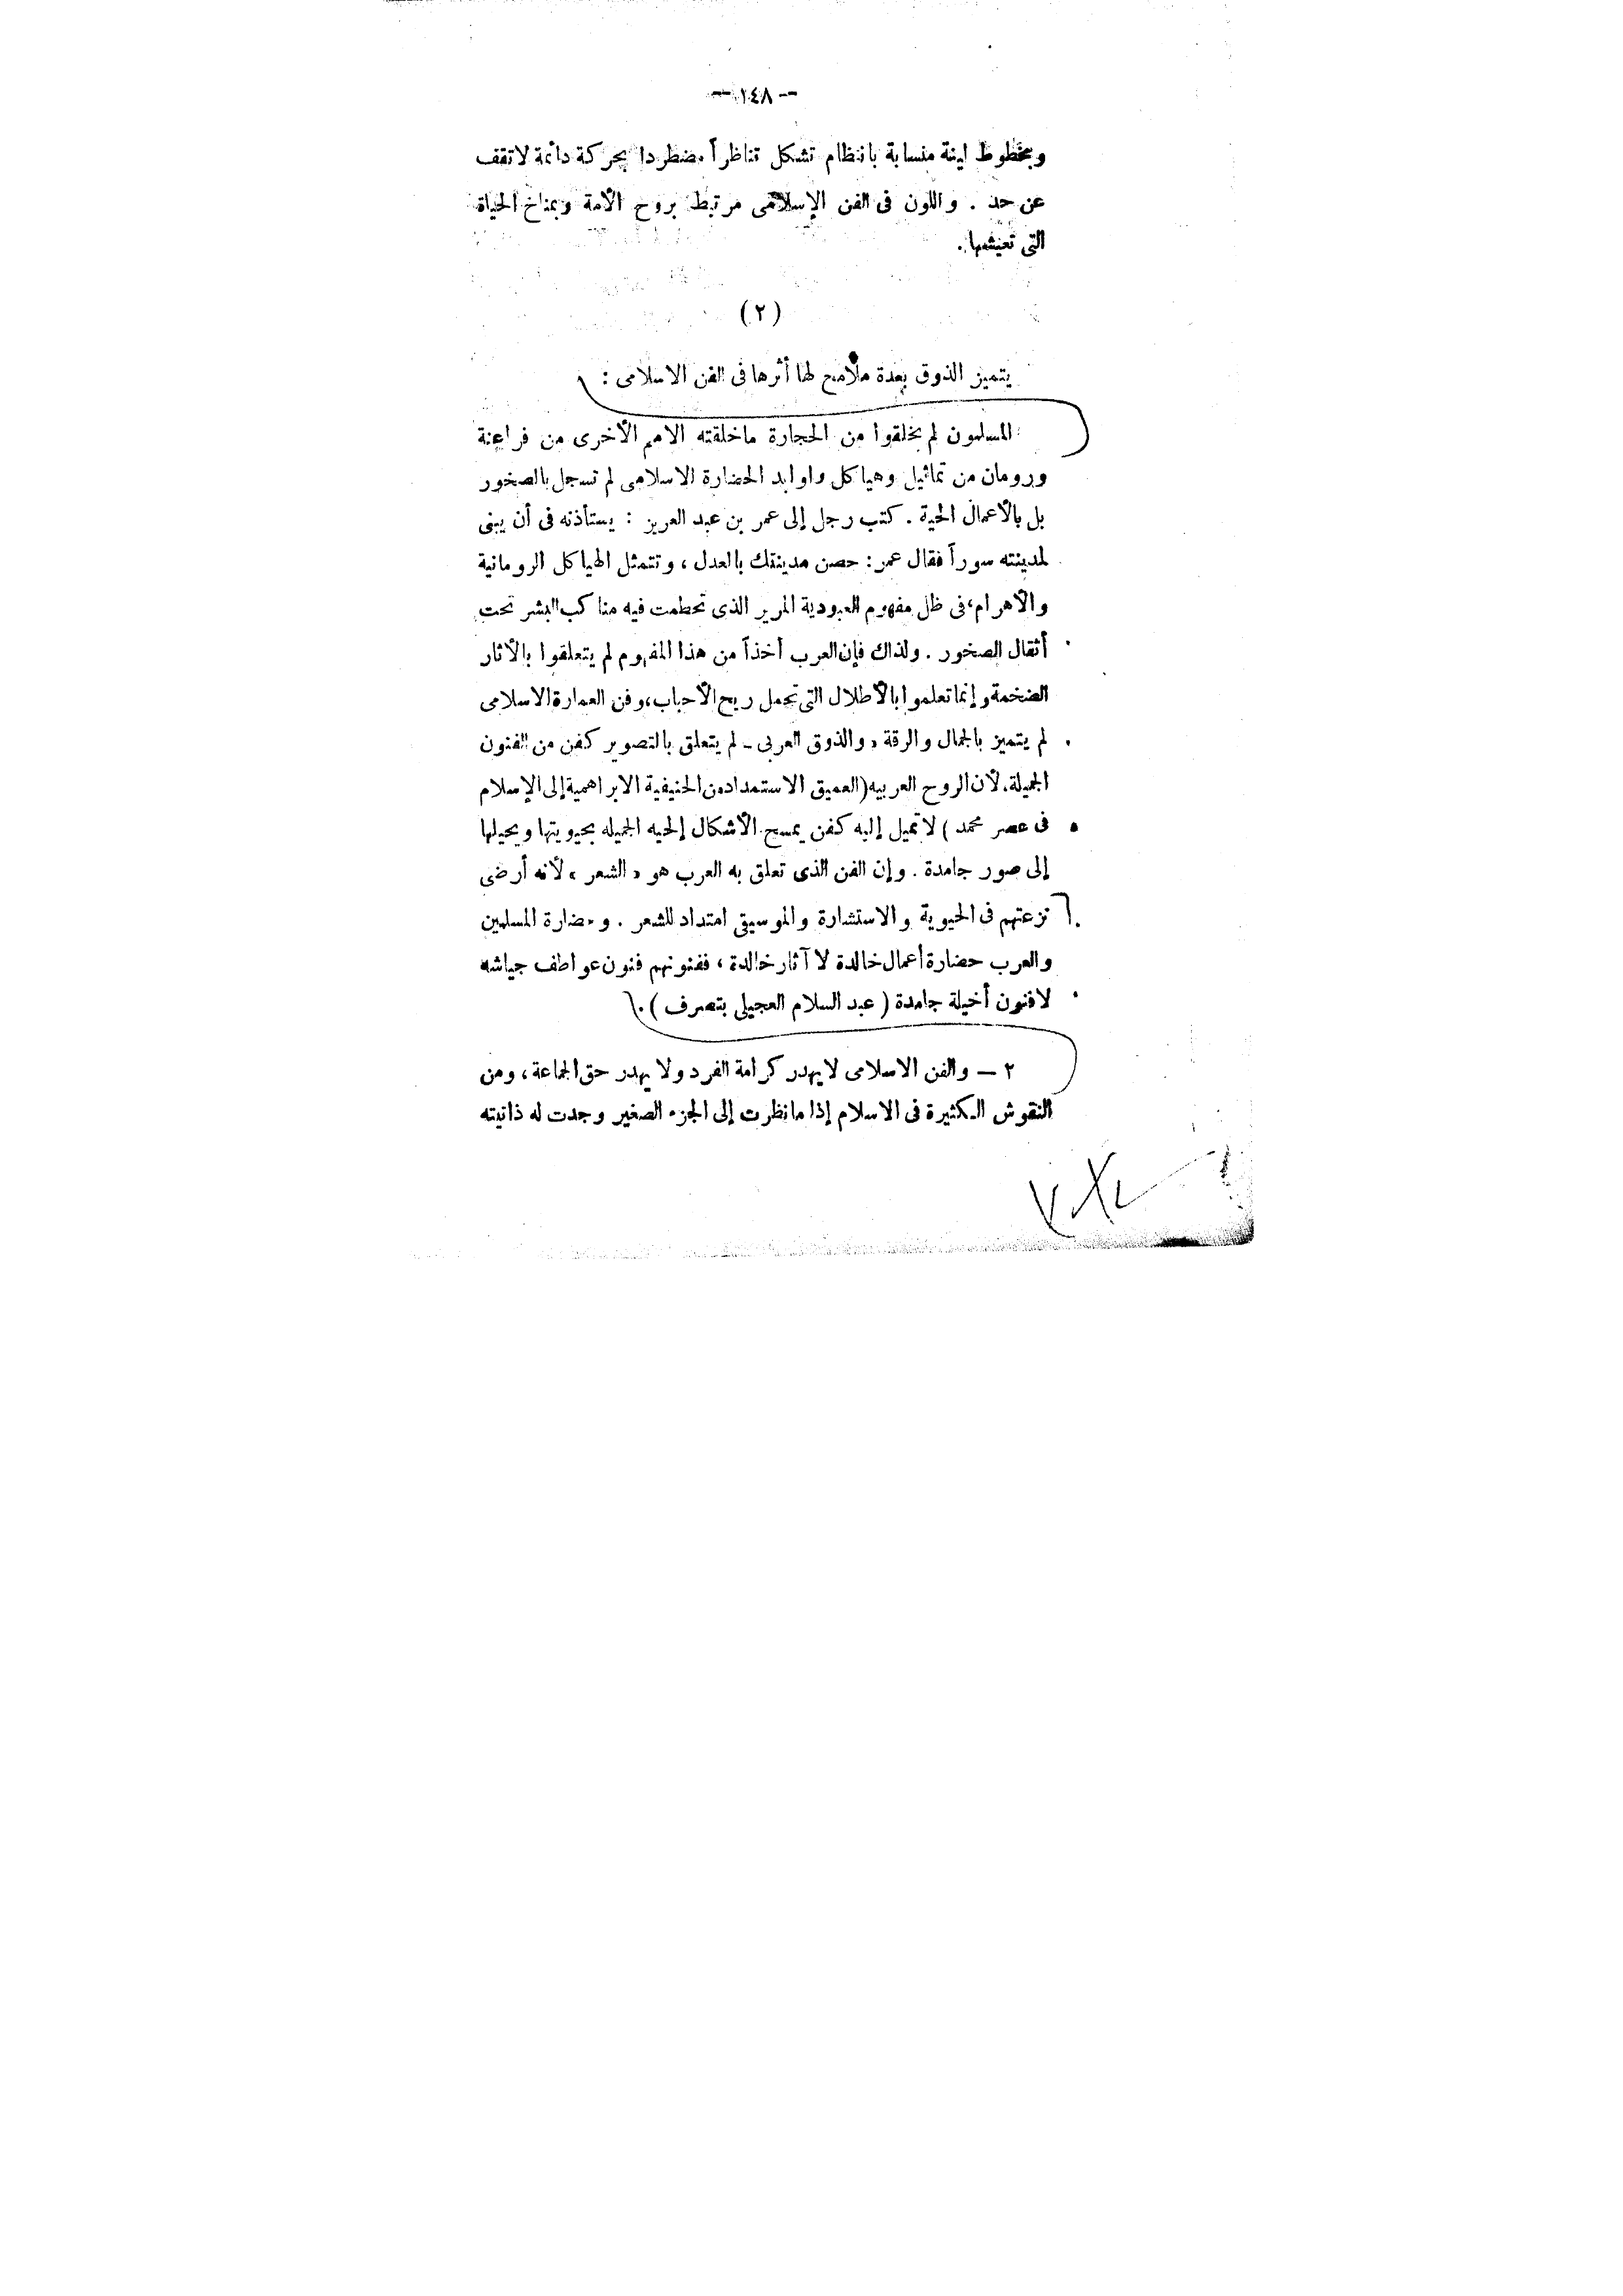 — ١٤٨ —
وبخطوط لينة منسابة بانتظام تشكل تناظراً مضطردا بحركة دائمة لا تقف
عن حد . واللون فى الفن الإسلامى مرتبط بروح الأمة وبمناخ الحياة
التى تعيشها .
( ٢ )
يتميز الذوق بعدة ملامح لها أثرها فى الفن الاسلامى :
المسلمون لم يخلقوا من الحجارة ماخلقته الامم الأخرى من فراعنة
ورومان من تماثيل وهياكل واوابد الحضارة الاسلامى لم تسجل بالصخور
بل بالأعمال الحية . كتب رجل إلى عمر بن عبد العزيز : يستأذنه فى أن يبنى
لمدينته سوراً فقال عمر : حصن مدينتك بالعدل ، وتتمثل الهياكل الرومانية
والاهرام ، فى ظل مفهوم العبودية المرير الذى تحطمت فيه مناكب البشر تحت
أثقال الصخور . ولذاك فإن العرب أخذاً من هذا المفهوم لم يتعلقوا بالأثار
الضخمة وإنما تعلموا بالأطلال التى تحمل ريح الأحباب ، وفن العمارة الاسلامى
لم يتميز بالجمال والرقة ، والذوق العربى ـ لم يتعلق بالتصوير كفن من الفنون
الجميلة . لأن الروح العربيه ( العميق الاستمداد من الحنيفية الابراهمية إلى الإسلام
فى عصر محمد ) لا تميل إليه كفن يمسح الأشكال الحيه الجميله بحيويتها ويحيلها
إلى صور جامدة . وإن الفن الذى تعلق به العرب هو « الشعر » لأنه أرضى
نزعتهم فى الحيوية والاستشارة والموسيقى امتداد للشعر . وحضارة المسلمين
والعرب حضارة أعمال خالدة لا آثار خالدة ، ففنونهم فنون عواطف جياشه
لا فنون أخيلة جامدة ( عبد السلام العجيلى بتصرف ) .
٢ — والفن الاسلامى لا يهدر كرامة الفرد ولا يهدر حق الجماعة ، ومن
النقوش الكثيرة فى الاسلام إذا ما نظرت إلى الجزء الصغير وجدت له ذاتيته